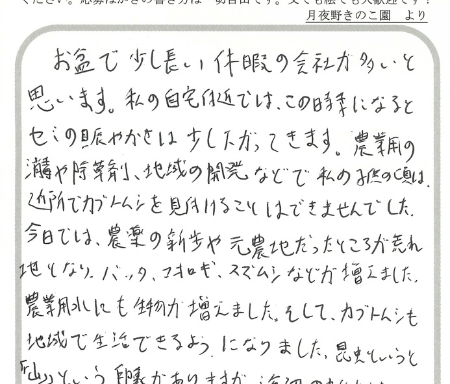 ください。応募はがきの書き方は一切自由です。文でも絵でも大歓迎です!
月夜野きのこ園 より
お盆で少し長い休暇の会社が多いと
思います。私の自宅付近では、この時季になると
セミの賑やかさは少し下がってきます。農業用の
溝や除草剤、地域の開発などで私の子供の頃は、
近所でカブトムシを見付けることはできませんでした。
今日では、農薬の新歩や元農地だったところが荒れ
地となり、バッタ、コオロギ、スズムシなどが増えました。
農業用水にも生物が増えました。そして、カブトムシも
地域で生活できるようになりました。昆虫というと
「山」という印象がありますが